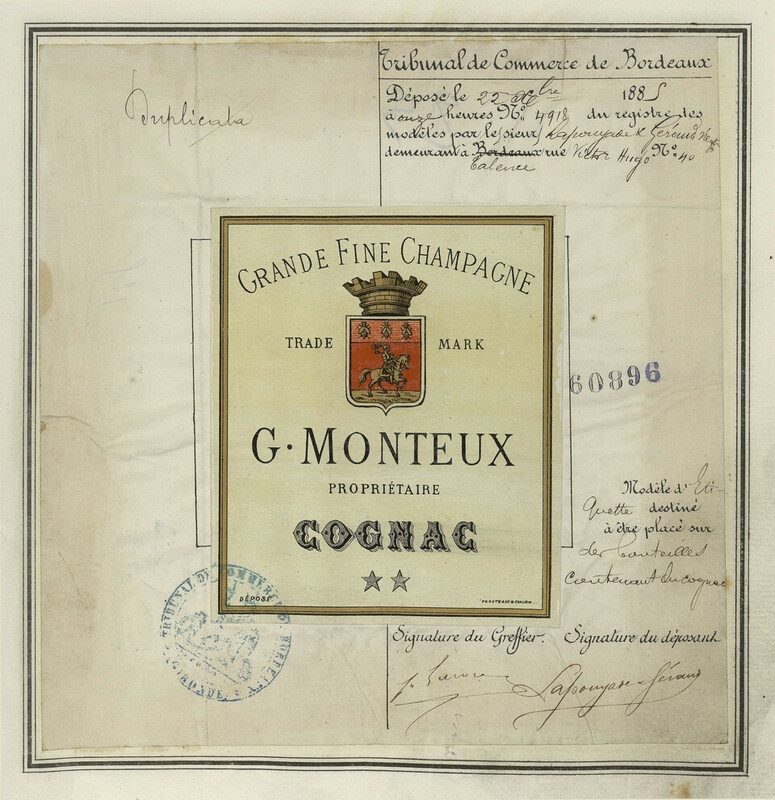 Duplicata
Tribunal de Commerce de Bordeaux
Déposé le 22 Xbre 1885
à onze heures No. 4918 du registre des
modèles par le sieur Lapouyade & Géraud
demeurant à Bordeaux rue Victor Hugo No. 40
Talence
GRANDE FINE CHAMPAGNE
TRADE MARK
60896
G. MONTEUX
PROPRIÉTAIRE
COGNAC
DÉPOSÉ
Modèle d'Eti-
quette destiné
à être placé sur
des bouteilles
contenant du cognac
TRIBUNAL DE COMMERCE DE BORDEAUX
GIRONDE
Signature du Greffier. Signature du déposant.
Lapouyade & Géraud